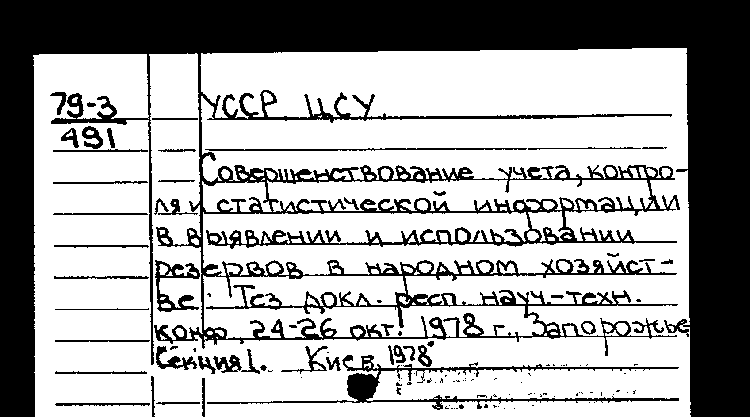 79-3
491
УССР. ЦСУ.
Совершенствование учета, контро-
ля и статистической информации
в выявлении и использовании
резервов в народном хозяйст-
ве: Тез. докл. респ. науч.-техн.
конф., 24-26 окт. 1978 г., Запорожье
Секция 1. Киев, 1978